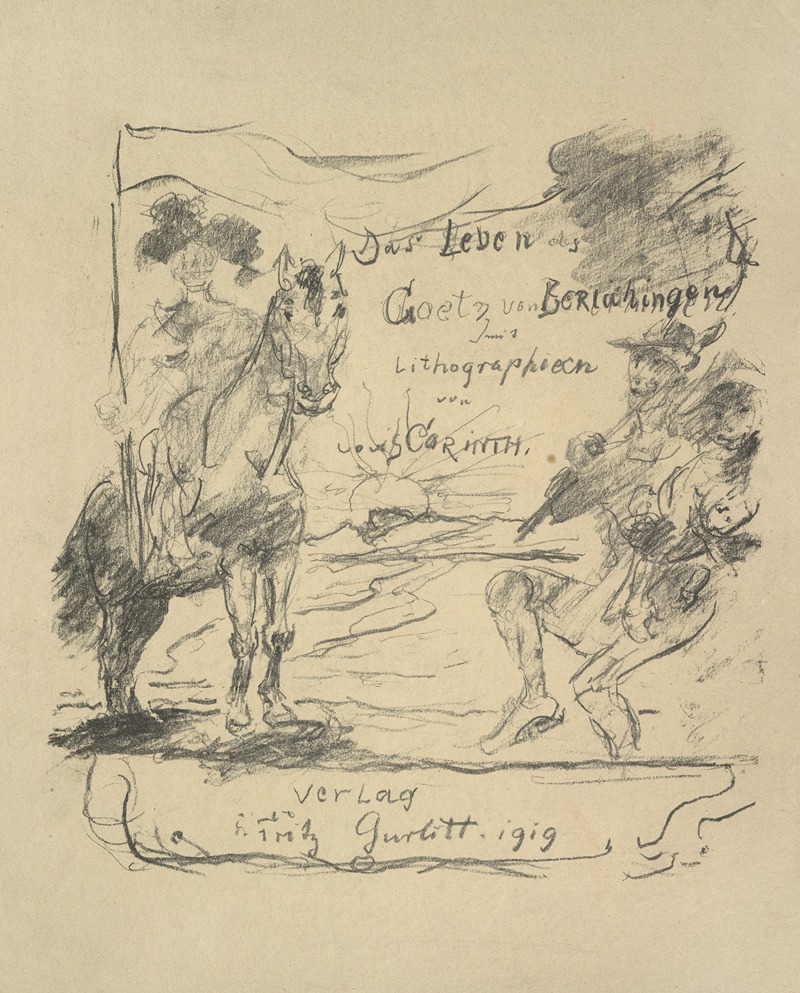 Das Leben des
Goetz von Berlichingen
mit
Lithographieen
von
Lovis CORINTH.
Verlag
Fritz Gurlitt. 1919